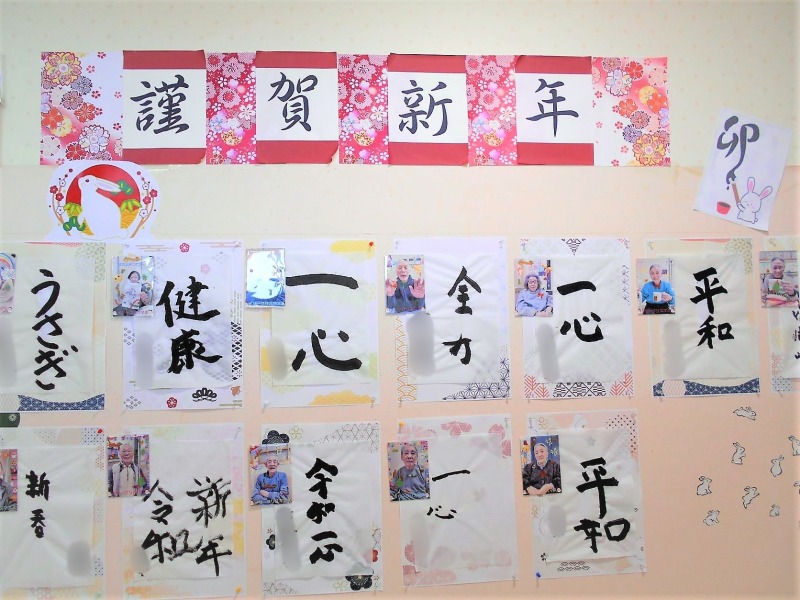 謹賀新年
卯
うさぎ
健康
一心
全力
一心
平和
新春
新年
令和
令和一心
一心
平和